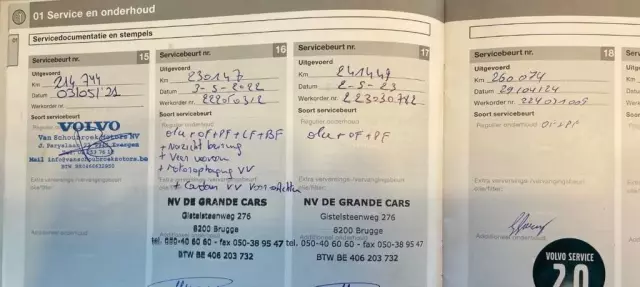 01 Service en onderhoud
Servicedocumentatie en stempels
Servicebeurt nr. 15
Uitgevoerd
Km 214 744
Datum 03/05/'21
Werkorder nr.
Soort servicebeurt
Regulier onderhoud
VOLVO
Van Schoubroek MOTORS NV
Mail info@vanschoubroekmotors.be
Extra verversings-/vervangingsbeurt
Additioneel onderhoud
Servicebeurt nr. 16
Uitgevoerd
Km 230147
Datum 2-5-2022
Werkorder nr. 222050312
Soort servicebeurt
olie + OF + PF + LF + BF
+ Nazicht
+ Veer
+ Motorophanging VV
+ Cardan VV
NV DE GRANDE CARS
Gistelsteenweg 276
8200 Brugge
tel. 050-40 60 60 - fax 050-38 95 47
BTW BE 406 203 732
Servicebeurt nr. 17
Uitgevoerd
Km 241449
Datum 2-5-23
Werkorder nr. 223030742
Soort servicebeurt
Regulier onderhoud
olie + OF + PF
Extra verversings-/vervangingsbeurt
NV DE GRANDE CARS
Gistelsteenweg 276
8200 Brugge
tel. 050-40 60 60 - fax 050-38 95 47
BTW BE 406 203 732
Servicebeurt nr. 18
Uitgevoerd
Km 260.074
Datum 29/04/24
Werkorder nr.
Soort servicebeurt
Regulier onderhoud
Extra verversings-/vervangingsbeurt
(olie/filter)
Additioneel onderhoud
VOLVO SERVICE
2.0